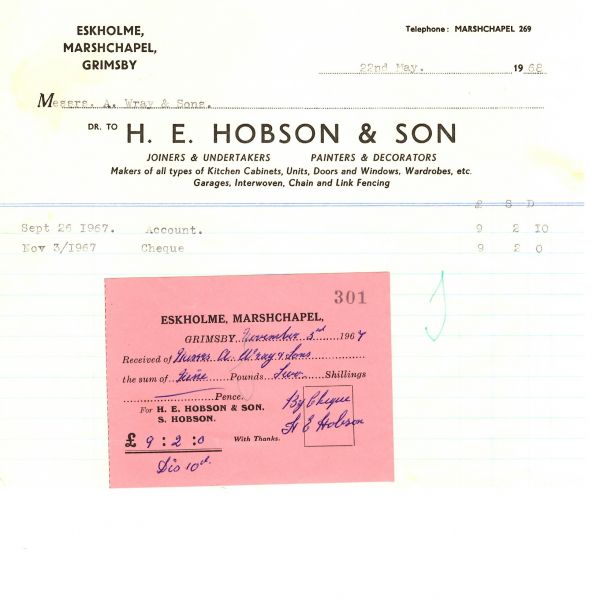 ESKHOLME,
MARSHCHAPEL,
GRIMSBY
Telephone: MARSHCHAPEL 269
22nd May. 1968
Messrs. A. Wray & Sons.
DR. TO H. E. HOBSON & SON
JOINERS & UNDERTAKERS PAINTERS & DECORATORS
Makers of all types of Kitchen Cabinets, Units, Doors and Windows, Wardrobes, etc.
Garages, Interwoven, Chain and Link Fencing
£ S D
Sept 26 1967. Account. 9 2 10
Nov 3/1967 Cheque 9 2 0
301
ESKHOLME, MARSHCHAPEL,
GRIMSBY, November 3rd 1967
Received of Messrs A. Wray & Sons
the sum of Nine Pounds Two Shillings
Pence.
For H. E. HOBSON & SON.
S. HOBSON.
By Cheque
H E Hobson
£ 9 : 2 : 0 With Thanks.
Dis 10d.